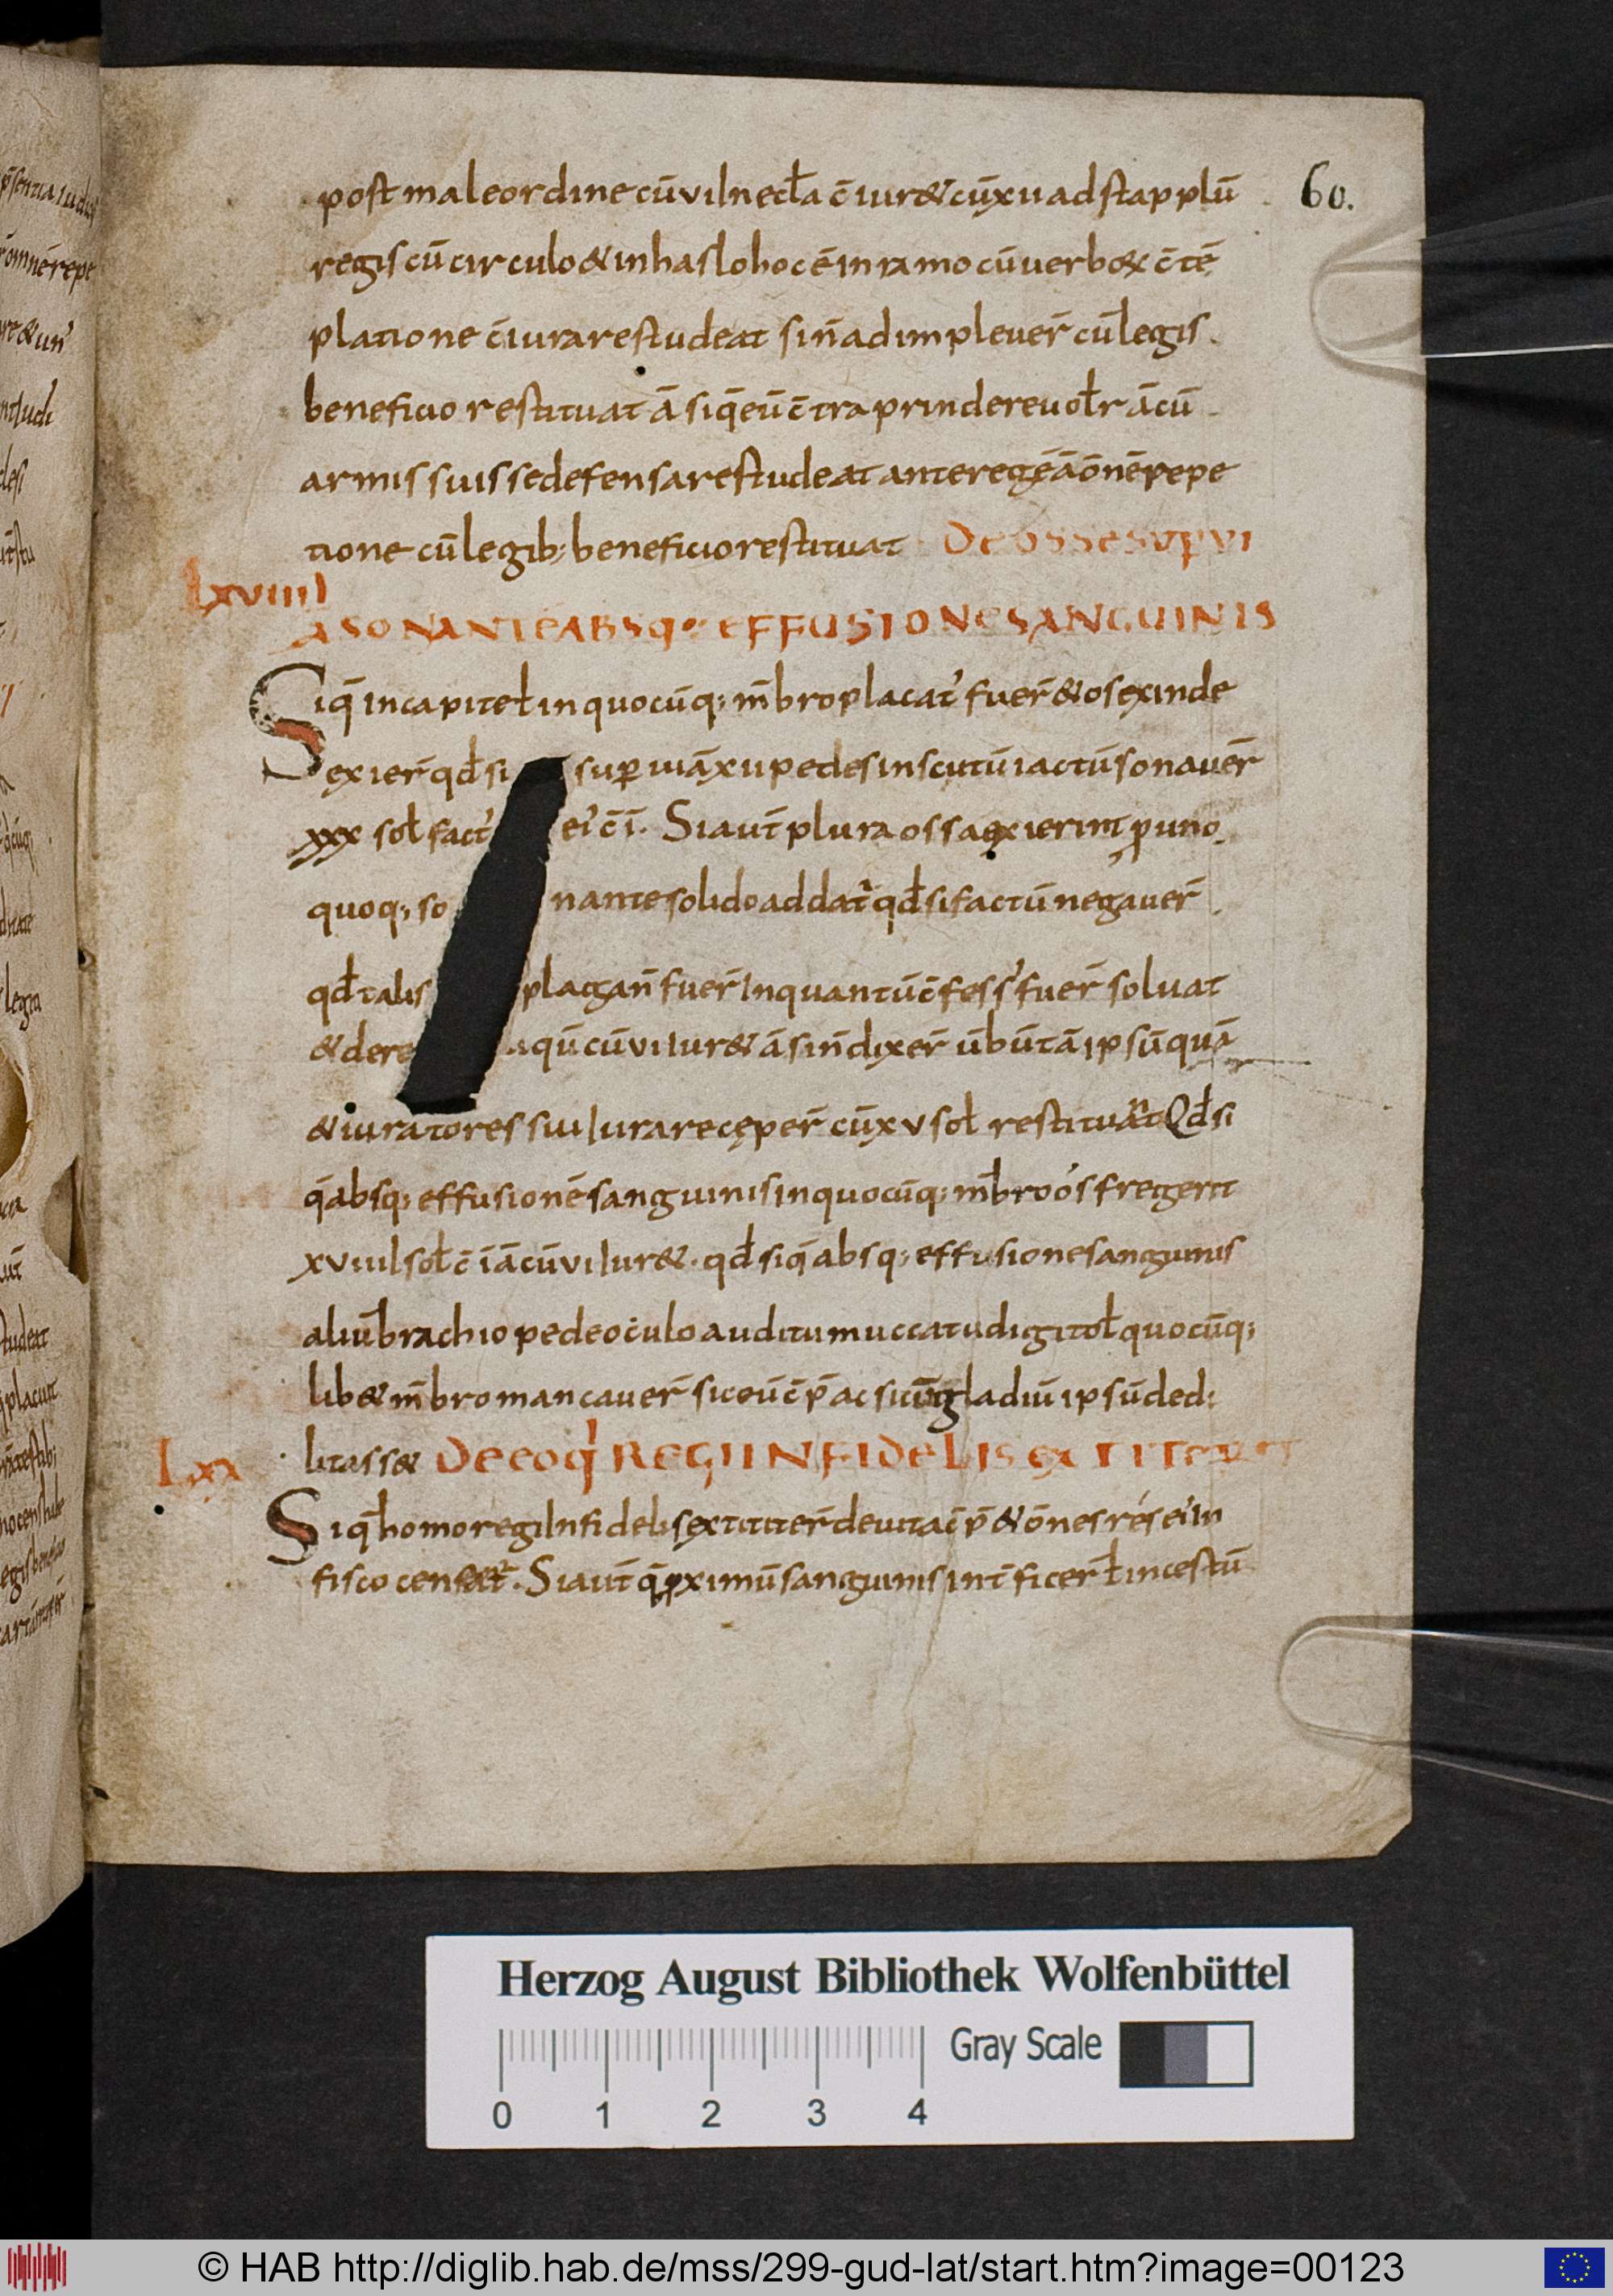 60.
post maleordine cū vi lnectł a c̄ iur& cū xu ad stapplū
regis cū circulo & in haslo hoc ē in ramo cū verbo & c̄tē
platione c̄iurare studeat sin̄ adimpleuer̄ cū legis.
beneficio restituat ā siq̄ eū c̄tra prindere uoł r ā cū
armis suis se defensare studeat ante regē ā ōnē repe
tione cū legib; beneficio restituat De osse supvi
lxviiii
ASONANTE ABSQ; EFFUSIONE SANGUINIS
Siq̄ in capite ł in quocūq; m̄bro placat' fuer̄ & os exinde
exier̄ qđ si sup uiā xii pedes in scutū iactū sonauer̄
xxx soł fact' ei' c̄ī. Si aut̄ plura ossa exierint p uno
quoq; so nante solido addat̄ qđ si factū negauer̄
qđ talis plagan̄ fuer̄ In quantū c̄fess' fuer̄ soluat
& dere qū cū vi Iur& ā sin̄ dixer̄ ūbūtā ipsū quā
& iuratores sui Iurare cęper̄ cū xv soł restituat Qđ si
q̄ absq; effusionē sanguinis in quocūq; m̄bro ós fregerit
xviiiI soł c̄ī ā cū vi Iur&. qđ siq̄ absq; effusione sanguinis
aliū brachio pede oculo auditu muccatu digito ł quocūq;
lib& m̄bro mancauer̄ sic eū c̄p̄ ac si cū gladiū ipsū ded;
litass& De eo qi REGI INFIDELIS extiterit
Lxx
Siq̄ homo regi Infidelis extititer̄ de uita c̄p̄ & ōnes rés ei' In
fisco censeat̄. Si aut̄ q̄ pximū sanguinis int̄ficer̄ ł incestū
Herzog August Bibliothek Wolfenbüttel
0 1 2 3 4 Gray Scale
© HAB http://diglib.hab.de/mss/299-gud-lat/start.htm?image=00123